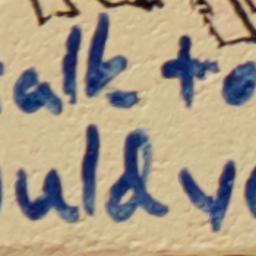 alk to
uld yo